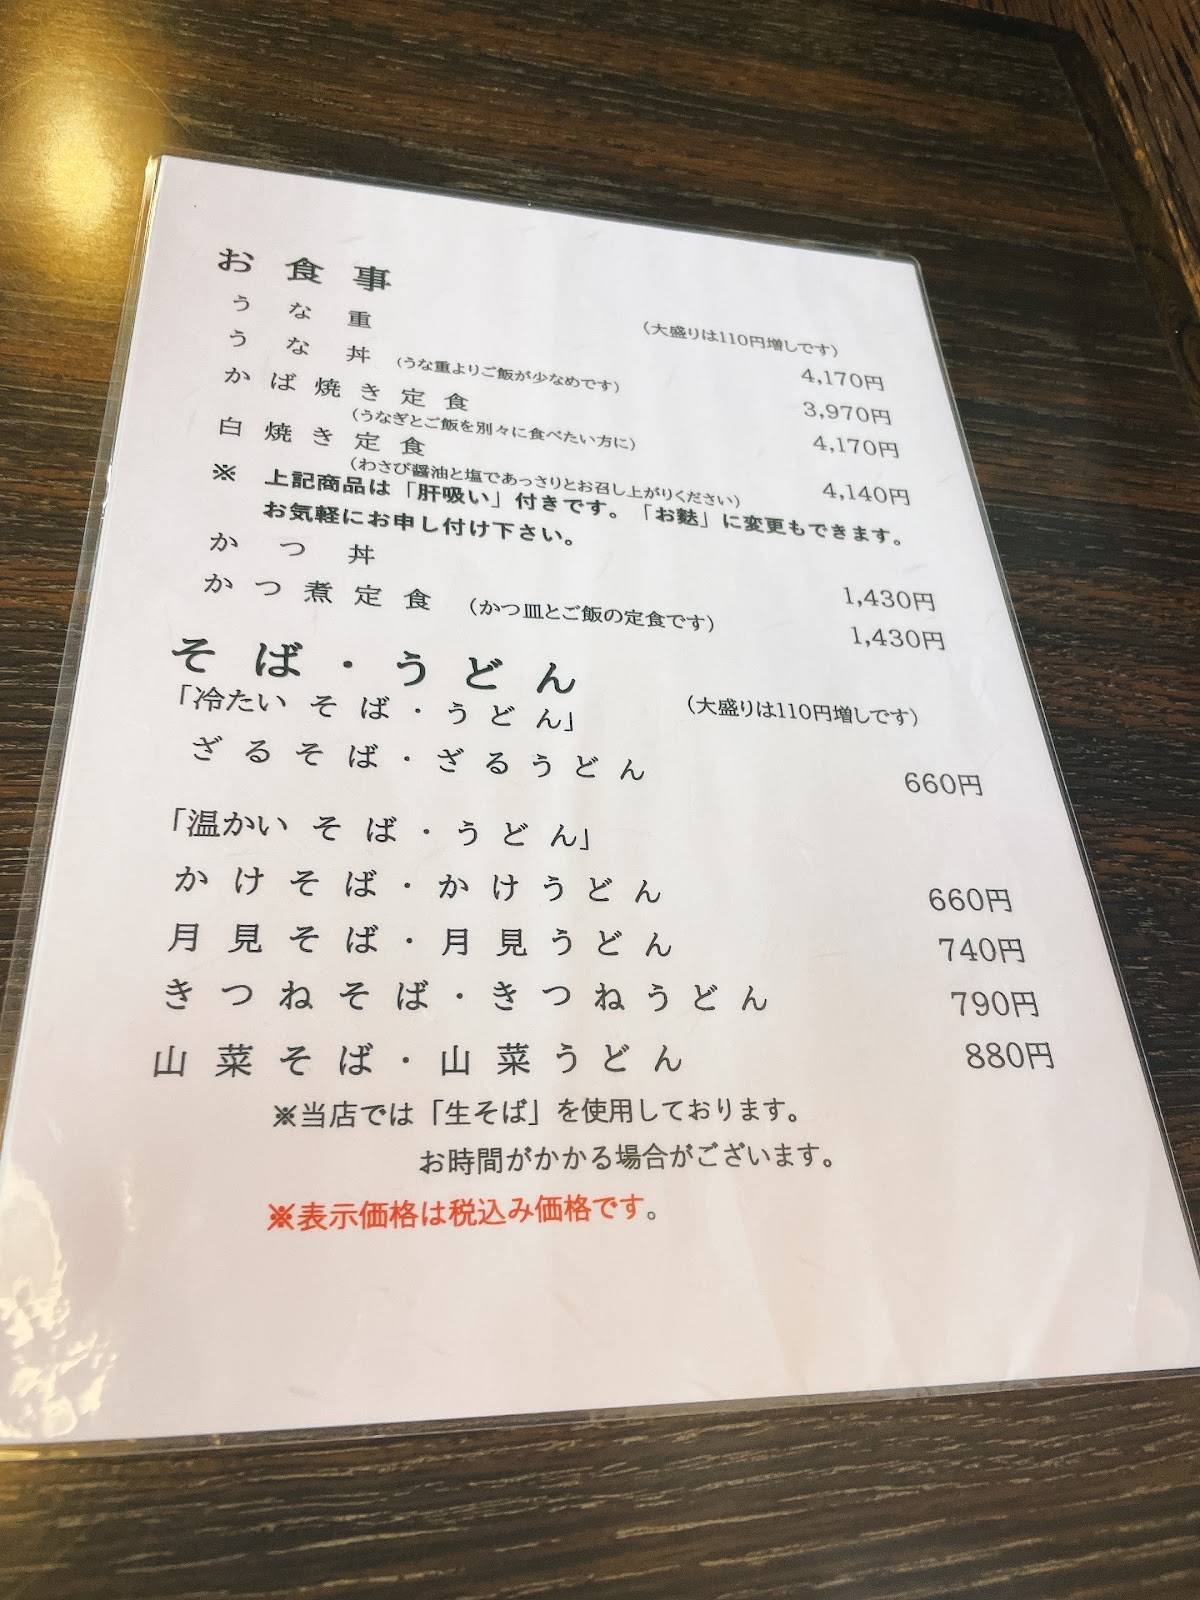 お食事
(大盛りは110円増しです)
うな重 4,170円
うな丼 (うな重よりご飯が少なめです) 3,970円
かば焼き定食 4,170円
(うなぎとご飯を別々に食べたい方に)
白焼き定食 4,140円
(わさび醤油と塩であっさりとお召し上がりください)
※ 上記商品は「肝吸い」付きです。「お麩」に変更もできます。
お気軽にお申し付け下さい。
かつ丼 1,430円
かつ煮定食 (かつ皿とご飯の定食です) 1,430円
そば・うどん
「冷たいそば・うどん」 (大盛りは110円増しです)
ざるそば・ざるうどん 660円
「温かいそば・うどん」
かけそば・かけうどん 660円
月見そば・月見うどん 740円
きつねそば・きつねうどん 790円
山菜そば・山菜うどん 880円
※当店では「生そば」を使用しております。
お時間がかかる場合がございます。
※表示価格は税込み価格です。